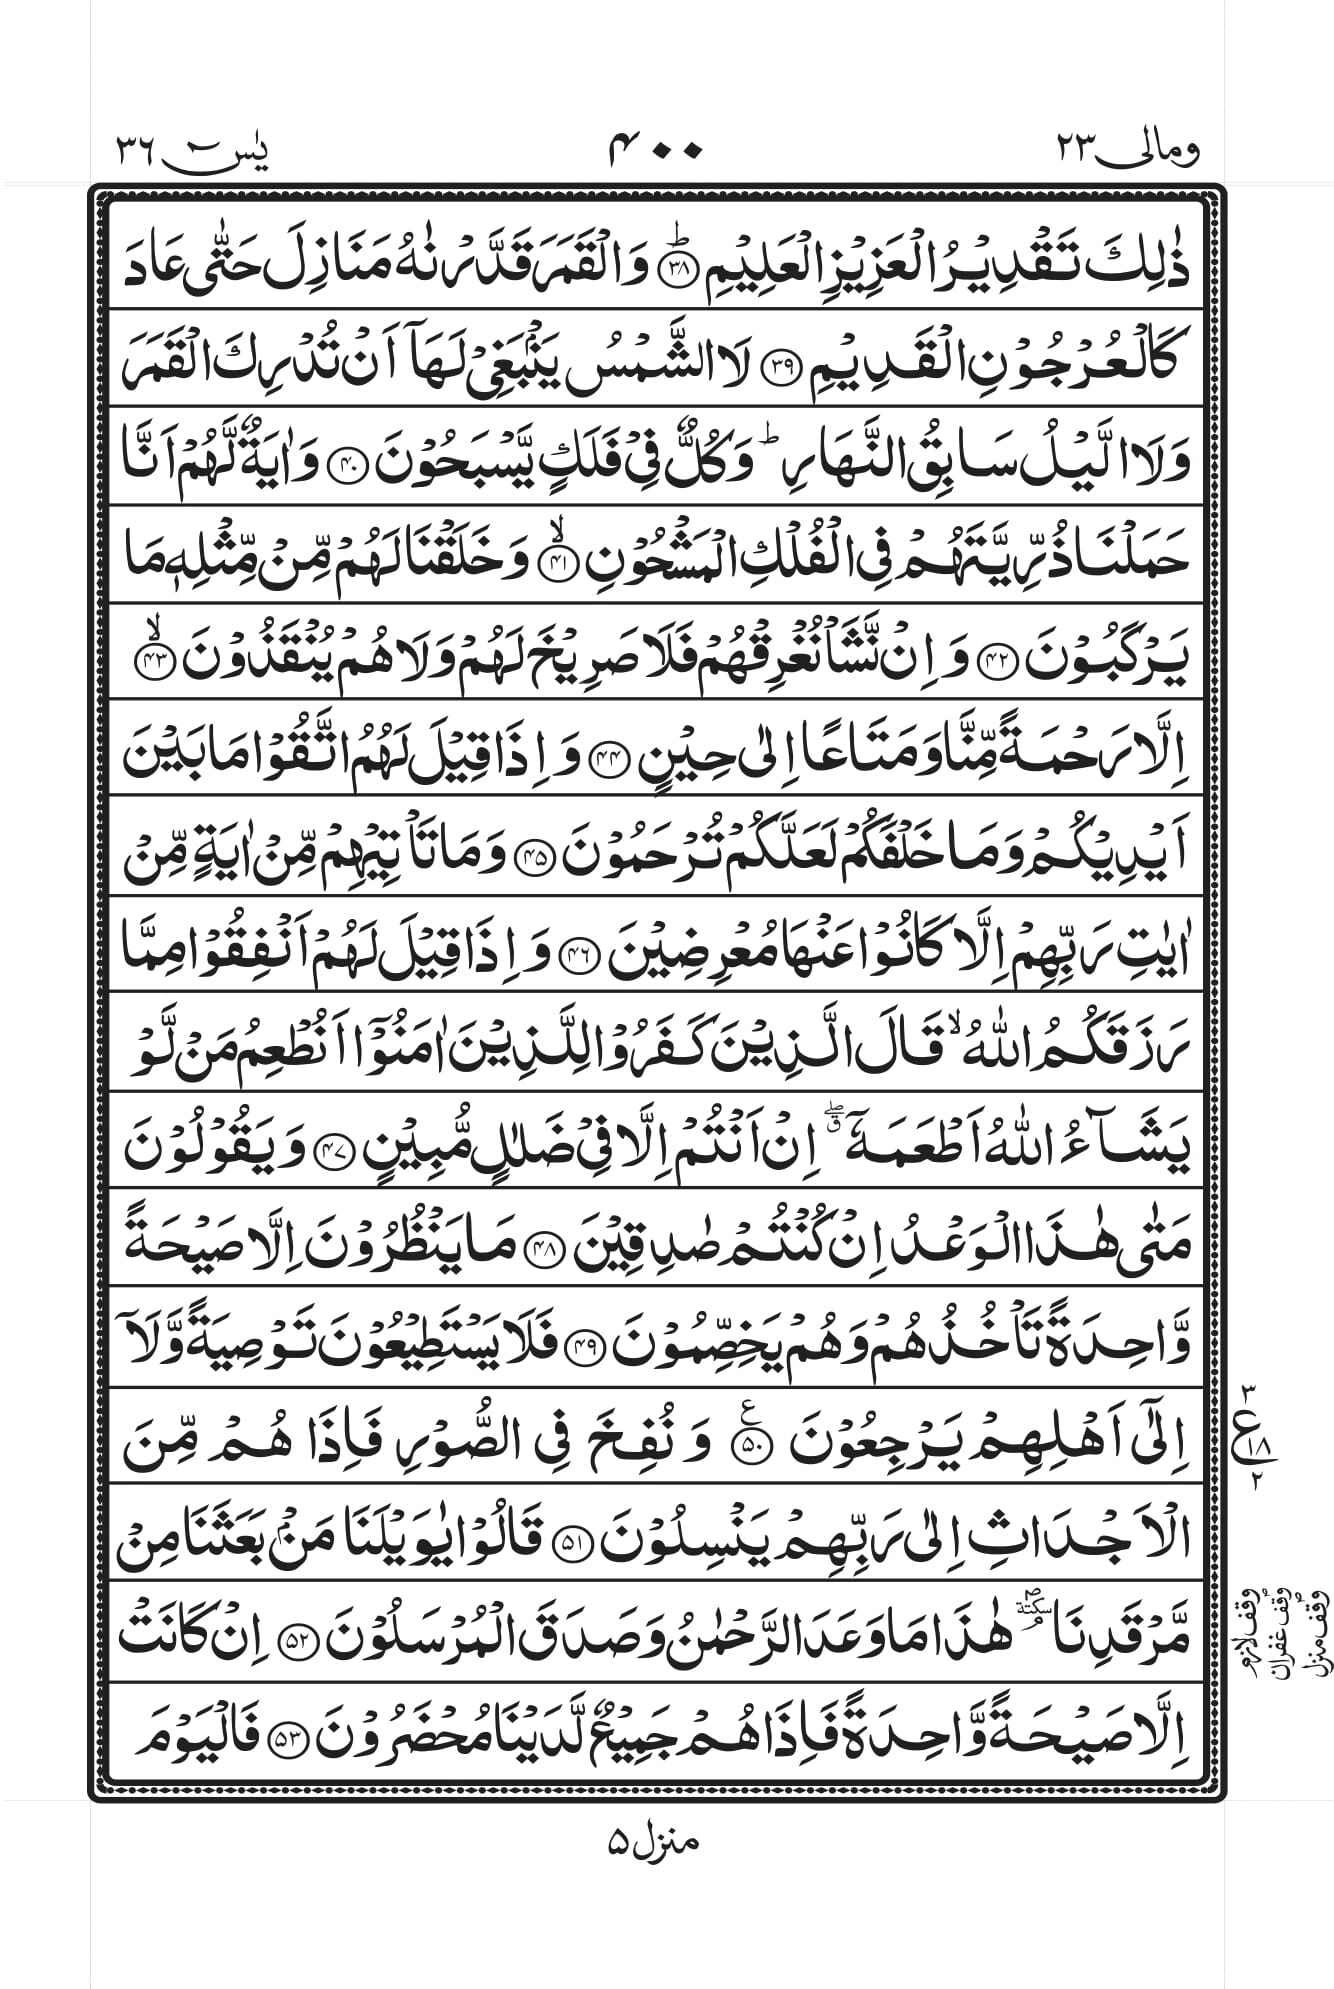 ومالى ٢٣
۴۰۰
يٰس ۳۶
ذٰلِكَ تَقْدِيْرُ الْعَزِيْزِ الْعَلِيْمِ ؕ‏ ﴿۳۸﴾ وَالْقَمَرَ قَدَّرْنٰهُ مَنَازِلَ حَتّٰى عَادَ
كَالْعُرْجُوْنِ الْقَدِيْمِ ﴿۳۹﴾ لَا الشَّمْسُ يَنْۢبَغِىْ لَهَاۤ اَنْ تُدْرِكَ الْقَمَرَ
وَلَا الَّيْلُ سَابِقُ النَّهَارِ ؕ وَكُلٌّ فِىْ فَلَكٍ يَّسْبَحُوْنَ ﴿۴۰﴾ وَاٰيَةٌ لَّهُمْ اَنَّا
حَمَلْنَا ذُرِّيَّتَهُمْ فِى الْفُلْكِ الْمَشْحُوْنِ ۙ‏ ﴿۴۱﴾ وَخَلَقْنَا لَهُمْ مِّنْ مِّثْلِهٖ مَا
يَرْكَبُوْنَ ﴿۴۲﴾ وَاِنْ نَّشَاْ نُغْرِقْهُمْ فَلَا صَرِيْخَ لَهُمْ وَلَا هُمْ يُنْقَذُوْنَ ۙ‏ ﴿۴۳﴾
اِلَّا رَحْمَةً مِّنَّا وَمَتَاعًا اِلٰى حِيْنٍ ﴿۴۴﴾ وَاِذَا قِيْلَ لَهُمُ اتَّقُوْا مَا بَيْنَ
اَيْدِيْكُمْ وَمَا خَلْفَكُمْ لَعَلَّكُمْ تُرْحَمُوْنَ ﴿۴۵﴾ وَمَا تَاْتِيْهِمْ مِّنْ اٰيَةٍ مِّنْ
اٰيٰتِ رَبِّهِمْ اِلَّا كَانُوْا عَنْهَا مُعْرِضِيْنَ ﴿۴۶﴾ وَاِذَا قِيْلَ لَهُمْ اَنْفِقُوْا مِمَّا
رَزَقَكُمُ اللّٰهُ ۙ قَالَ الَّذِيْنَ كَفَرُوْا لِلَّذِيْنَ اٰمَنُوْۤا اَنُطْعِمُ مَنْ لَّوْ
يَشَآءُ اللّٰهُ اَطْعَمَهٗۤ ۖ ق اِنْ اَنْتُمْ اِلَّا فِىْ ضَلٰلٍ مُّبِيْنٍ ﴿۴۷﴾ وَيَقُوْلُوْنَ
مَتٰى هٰذَا الْوَعْدُ اِنْ كُنْتُمْ صٰدِقِيْنَ ﴿۴۸﴾ مَا يَنْظُرُوْنَ اِلَّا صَيْحَةً
وَّاحِدَةً تَاْخُذُهُمْ وَهُمْ يَخِصِّمُوْنَ ﴿۴۹﴾ فَلَا يَسْتَطِيْعُوْنَ تَوْصِيَةً وَّلَاۤ
اِلٰٓى اَهْلِهِمْ يَرْجِعُوْنَ ﴿۵۰﴾ ع وَنُفِخَ فِى الصُّوْرِ فَاِذَا هُمْ مِّنَ
الْاَجْدَاثِ اِلٰى رَبِّهِمْ يَنْسِلُوْنَ ﴿۵۱﴾ قَالُوْا يٰوَيْلَنَا مَنْۢ بَعَثَنَا مِنْ
مَّرْقَدِنَا ۘ سكتة هٰذَا مَا وَعَدَ الرَّحْمٰنُ وَصَدَقَ الْمُرْسَلُوْنَ ﴿۵۲﴾ اِنْ كَانَتْ
اِلَّا صَيْحَةً وَّاحِدَةً فَاِذَا هُمْ جَمِيْعٌ لَّدَيْنَا مُحْضَرُوْنَ ﴿۵۳﴾ فَالْيَوْمَ
۳
ع ۱۸
۲
وقف لازم
وقف غفران
وقف منزل
منزل ۵